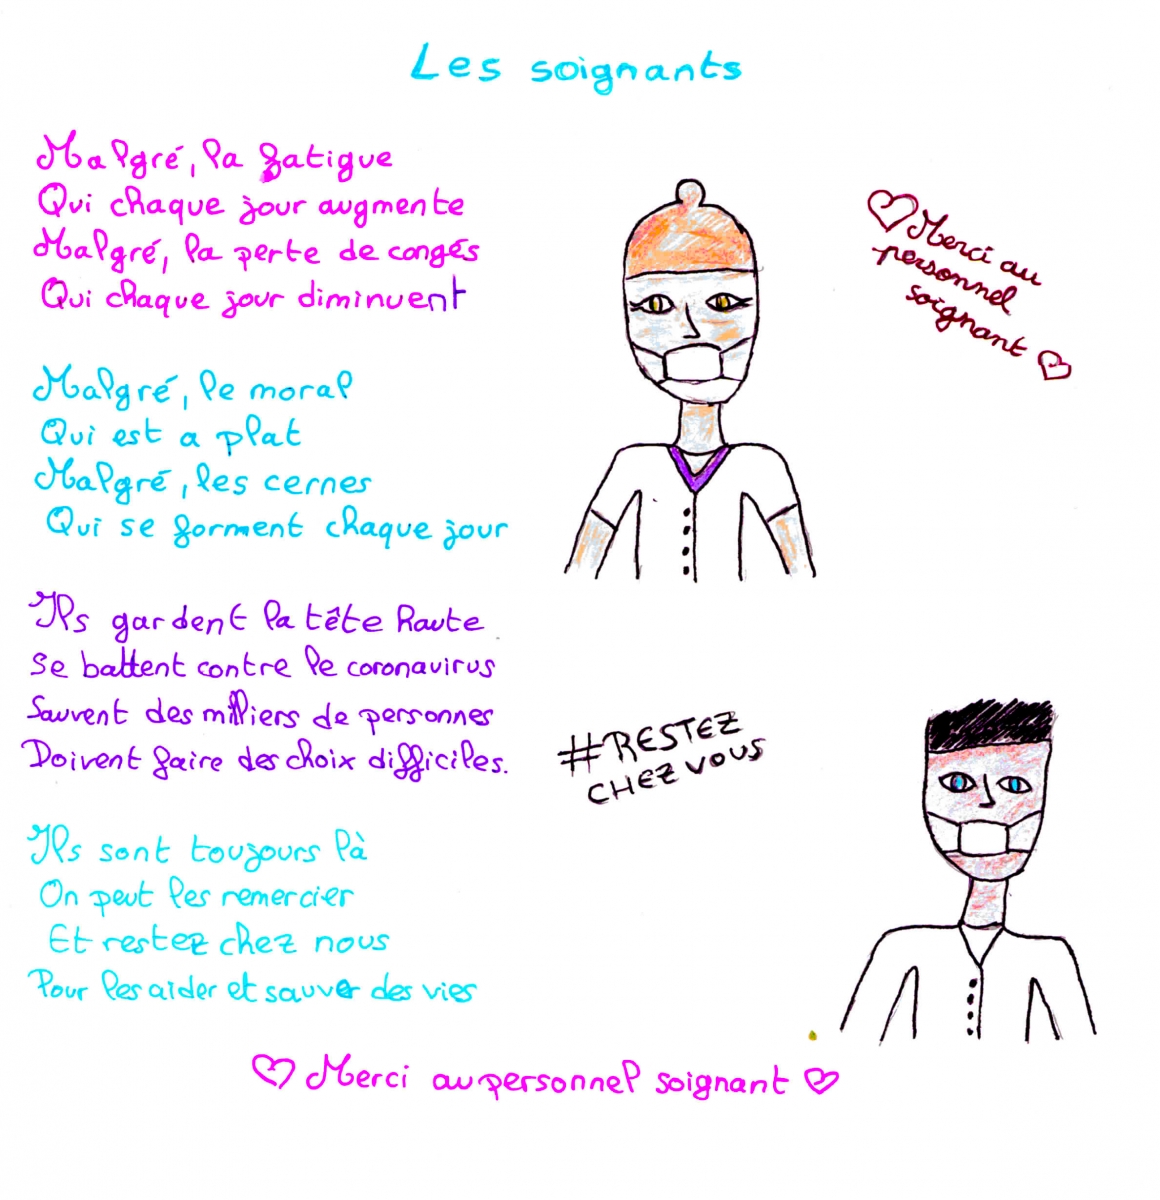 Les soignants
Malgré, la fatigue
Qui chaque jour augmente
Malgré, la perte de congés
Qui chaque jour diminuent
Malgré, le moral
Qui est a plat
Malgré, les cernes
Qui se forment chaque jour
Ils gardent la tête haute
Se battent contre le coronavirus
Sauvent des milliers de personnes
Doivent faire des choix difficiles.
Ils sont toujours là
On peut les remercier
Et restez chez nous
Pour les aider et sauver des vies
♡ Merci au personnel soignant ♡
♡ Merci au
personnel
soignant ♡
#RESTEZ
CHEZ VOUS